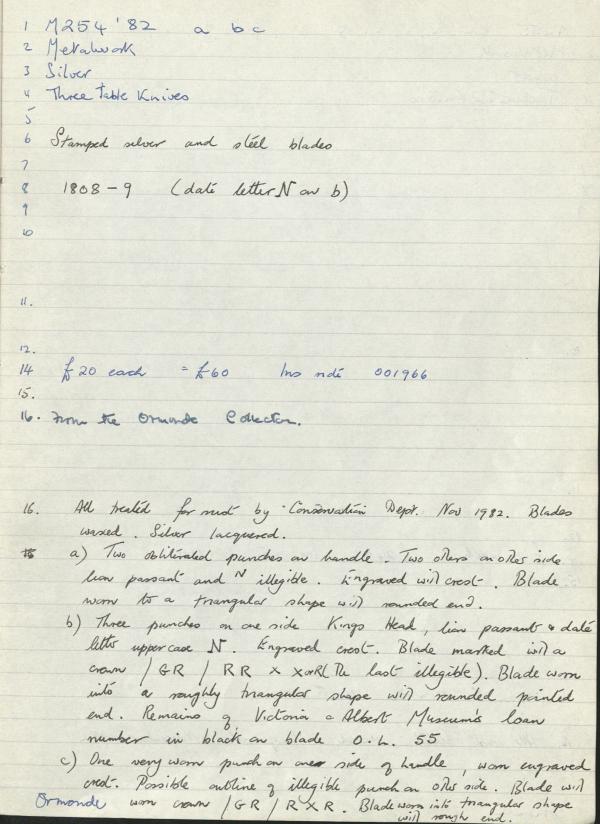 1 M254 '82 a b c
2 Metalwork
3 Silver
4 Three Table Knives
5
6 Stamped silver and steel blades
7
8 1808-9 (date letter N on b)
9
10
11.
12.
14 £20 each = £60 Ins note 001966
15.
16. From the Ormonde Collection.
16. All treated for rust by Conservation Dept. Nov 1982. Blades
waxed. Silver lacquered.
a) Two obliterated punches on handle. Two others on other side
lion passant and N illegible. Engraved with crest. Blade
worn to a triangular shape with rounded end.
b) Three punches on one side Kings Head, lion passant & date
letter uppercase N. Engraved crest. Blade marked with a
crown / GR / RR X X or R (The last illegible). Blade worn
into a roughly triangular shape with rounded pointed
end. Remains of Victoria & Albert Museum's loan
number in black on blade O.L. 55
c) One very worn punch on one side of handle, worn engraved
crest. Possible outline of illegible punch on other side. Blade with
Ormonde worn crown / GR / R X R. Blade worn into triangular shape
with rough end.